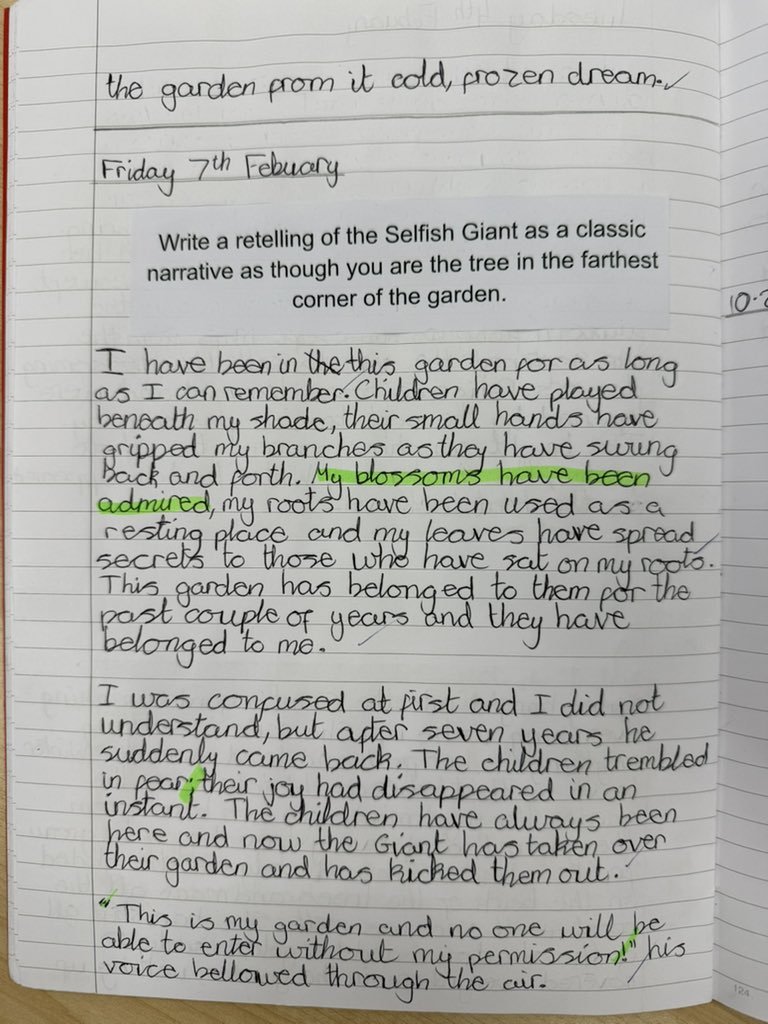 the garden from it cold, frozen dream.
Friday 7th Febuary
Write a retelling of the Selfish Giant as a classic
narrative as though you are the tree in the farthest
corner of the garden.
I have been in the this garden for as long
as I can remember. Children have played
beneath my shade, their small hands have
gripped my branches as they have swung
back and forth. My blossoms have been
admired, my roots have been used as a
resting place and my leaves have spread
secrets to those who have sat on my roots.
This garden has belonged to them for the
past couple of years and they have
belonged to me.
I was confused at first and I did not
understand, but after seven years he
suddenly came back. The children trembled
in fear; their joy had disappeared in an
instant. The children have always been
here and now the Giant has taken over
their garden and has kicked them out.
"This is my garden and no one will be
able to enter without my permission!" his
voice bellowed through the air.
10.2
124